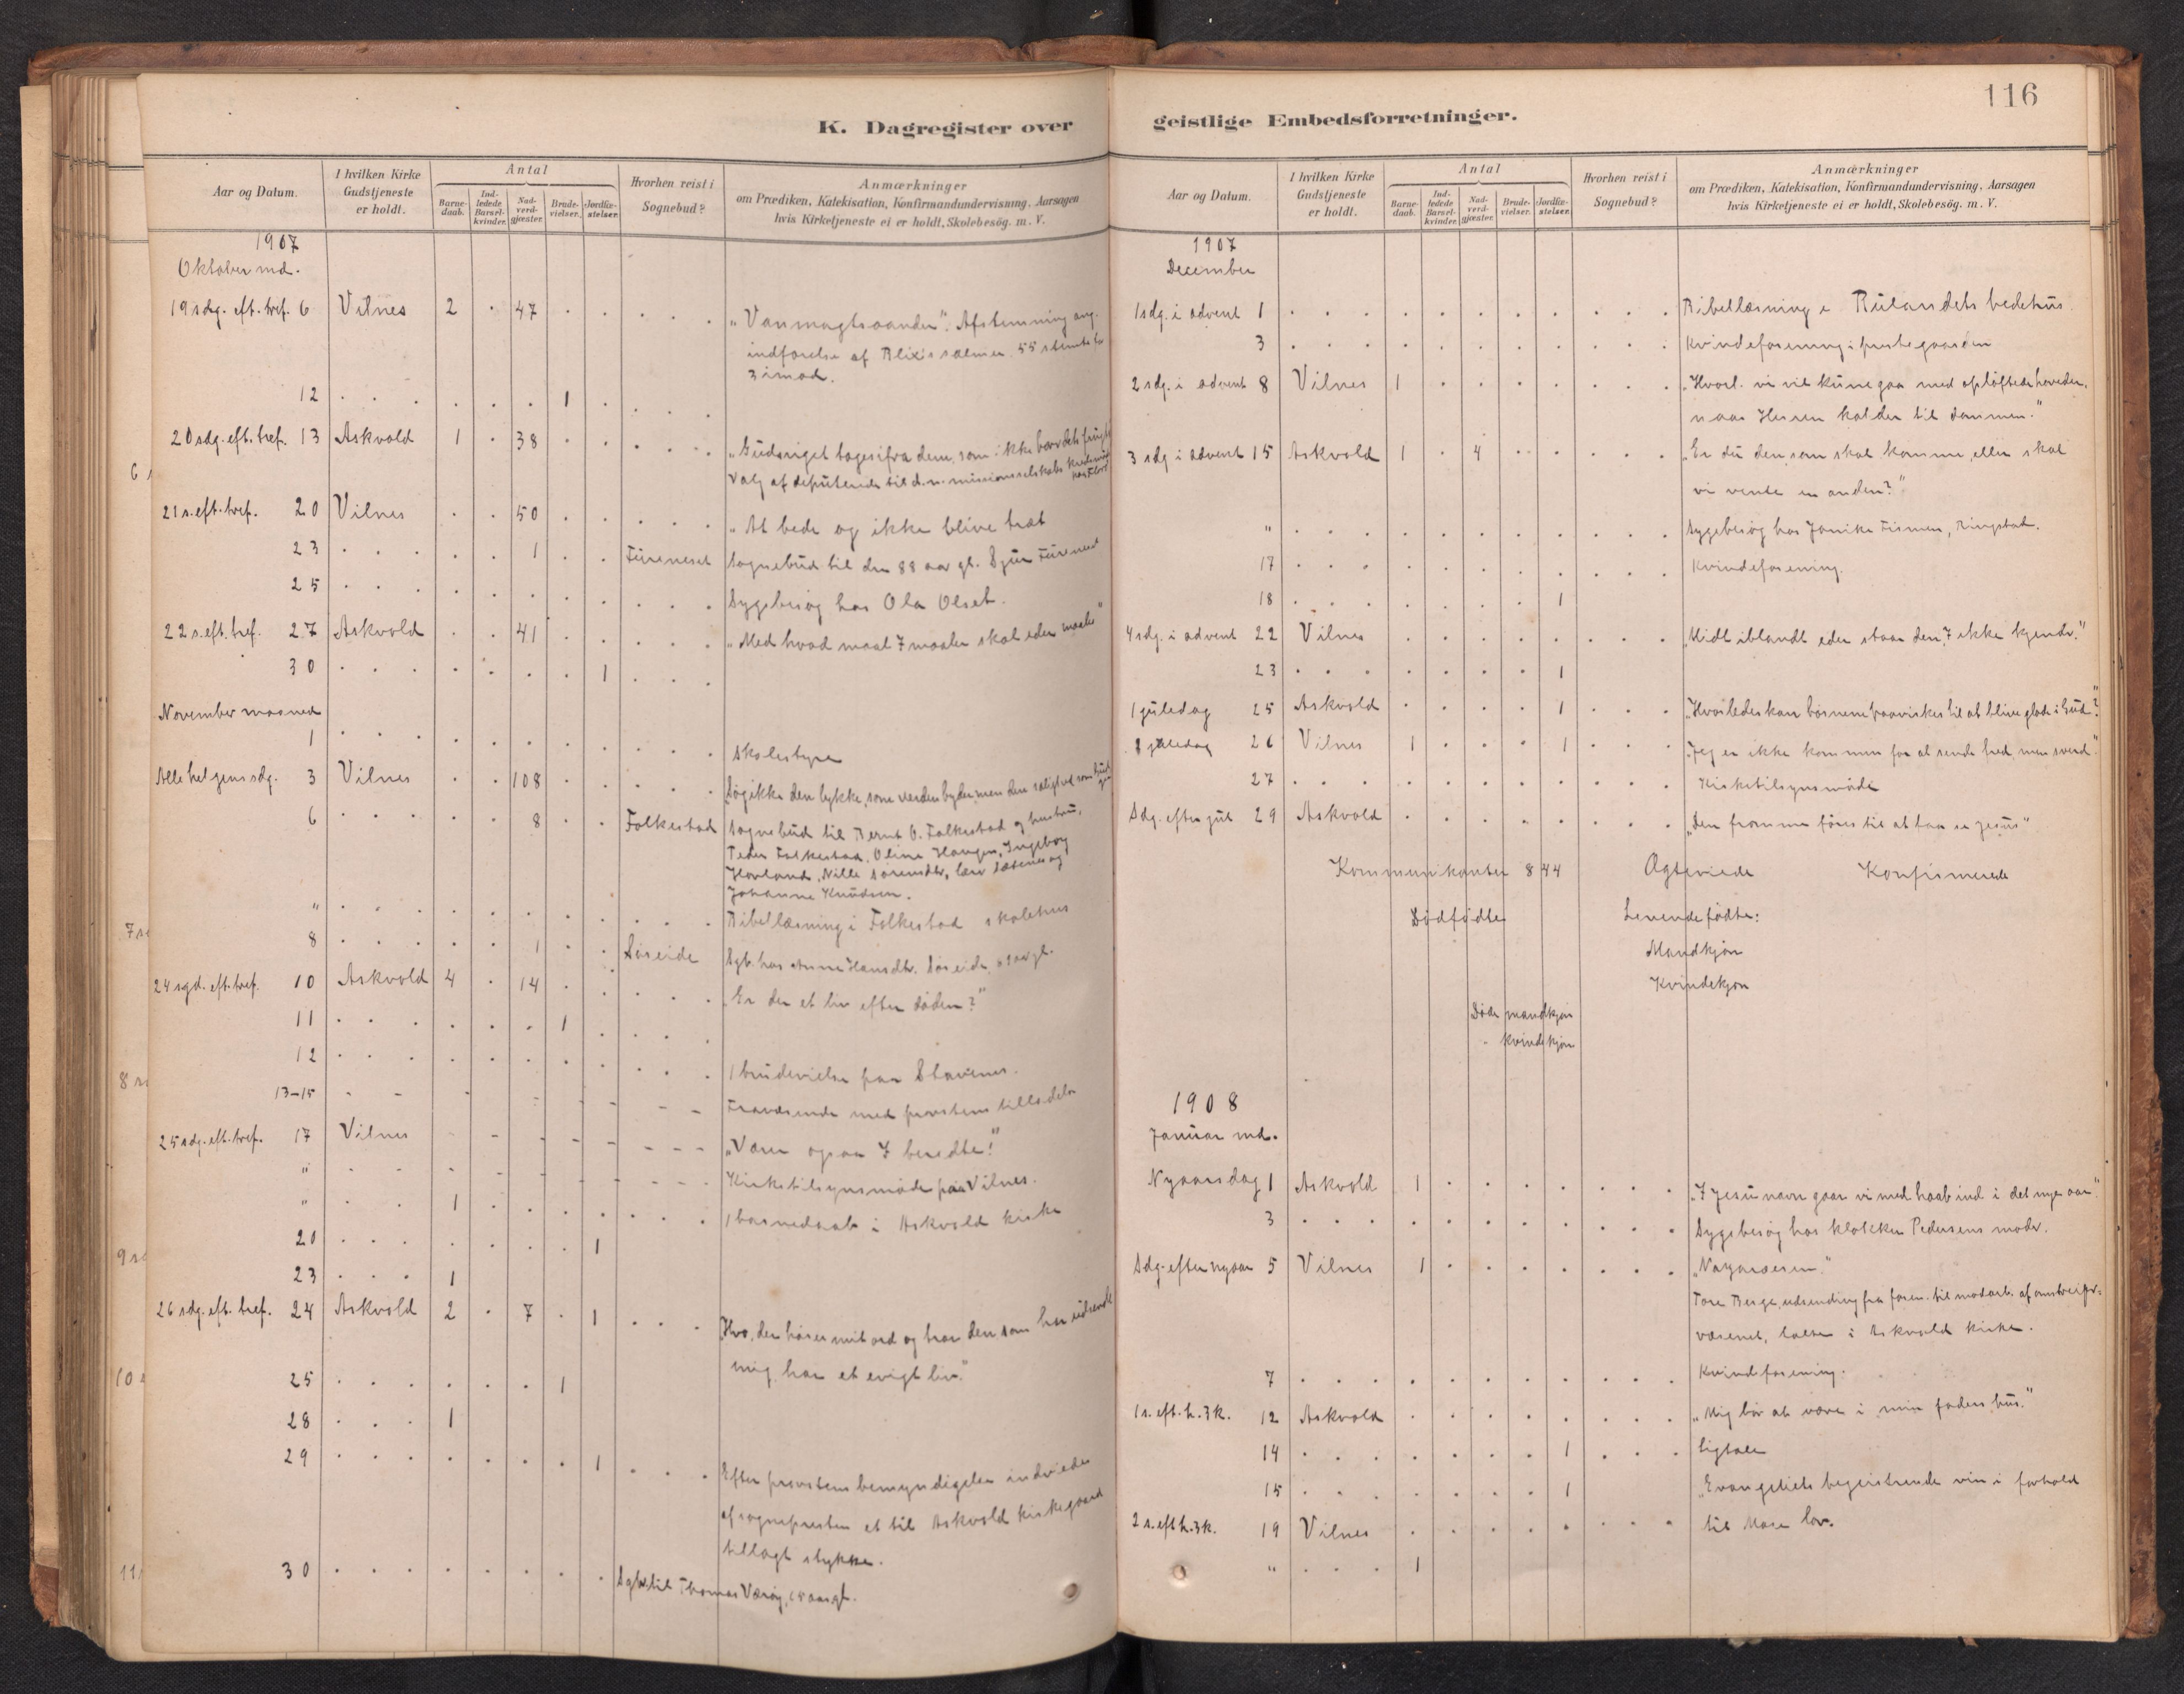 K. Dagregister over
Aar og Datum.
I hvilken Kirke Gudstjeneste er holdt.
Antal
Barnedaab.
Indledede Barselkvinder.
Nadverdgjæster.
Brudevielser.
Jordfæstelser.
Hvorhen reist i Sognebud?
Anmærkninger
om Prædiken, Katekisation, Konfirmandundervisning, Aarsagen
hvis Kirketjeneste ei er holdt, Skolebesög. m. V.
1907
Oktober md.
19 sdg. eft. tref. 6 Vilnes 2 . 47 . . . . . „Vanmagtsaanden". Afstemning ang.
indførelse af Blix's salmer. 55 stemte for
3 imod.
12 . . . . . . 1 . . .
20 sdg. eft. tref. 13 Askvold 1 . 38 . . . . . „Gudsriget tages ifra dem, som ikke bær dets frugt
Valg af deputerede til d. n. missionsselskabs
21 s. eft. tref. 20 Vilnes . . 50 . . . . . „At bede og ikke blive træt
23 . . . . . 1 . . Fureneset Sognebud til den 88 aar gl.
25 . . . . . . . . . . . Sygebesøg hos Ola Olset.
22 s. eft. tref. 27 Askvold . . 41 . . . . . „Med hvad maal I maaler skal eder maales"
30 . . . . . . . 1 . . .
November maaned
1 . . . . . . . . . . . Skolestyre
Alle helgens sdg. 3 Vilnes . . 108 . . . . . Søg ikke den lykke, som verden byder, men den salighed som
6 . . . . . 8 . . Folkestad Sognebud til Bernt O. Folkestad og hustru,
Peder Folkestad, Oline Haugen, Ingeborg
Hovland, Nille Sørensdtr,
Johanne Knudsen.
" . . . . . . . . . . . Bibellæsning i Folkestad skolehus
8 . . . . . 1 . . Søreide Sgb. hos Anne Hansdtr. Søreide
24 sgd. eft. tref. 10 Askvold 4 . 14 . . . . . „Er der et liv efter døden?"
11 . . . . . . 1 . . . .
12 . . . . . . . . . . . 1 brudevielse paa Stavenes.
13–15 - - - - - - - - Fraværende med provstens tilladelse
25 sdg. eft. tref. 17 Vilnes - - - - - - - - „Værer ogsaa I beredte!"
" - - - - - - - - - - Kirketilsynsmøde paa Vilnes.
" . . 1 . . . . . . . 1 barnedaab i Askvold kirke
20 . . . . . . . 1
23 . . . 1
26 sdg. eft. tref. 24 Askvold 2 . 7 . 1 . . . Hvo, der hører mit ord og tror den, som har udsendt
mig, har et evigt liv."
25 . . . . . . 1
28 . . . 1
29 . . . . . . . 1 . . . Efter provstens bemyndigelse indviedes
af sognepresten et til Askvold kirkegaard
tillagt stykke.
30 . . . . . . . . Sgb. til Thomas Værøy,
116
geistlige Embedsforretninger.
Aar og Datum.
I hvilken Kirke Gudstjeneste er holdt.
Antal
Barnedaab.
Indledede Barselkvinder.
Nadverdgjæster.
Brudevielser.
Jordfæstelser.
Hvorhen reist i Sognebud?
Anmærkninger
om Prædiken, Katekisation, Konfirmandundervisning, Aarsagen
hvis Kirketjeneste ei er holdt, Skolebesög. m. V.
1907
December
1 sdg. i advent 1 . . . . . . . . . . . Bibellæsning i Rulandets bedehus.
3 . . . . . . . . . . . Kvindeforening i prestegaarden
2 sdg. i advent 8 Vilnes 1 . . . . . . . „Hvorl. vi vil kunne gaa med opløftede hoveder,
naar Herren kalder til dommen."
3 sdg i advent 15 Askvold 1 . 4 . . . . . „Er du den som skal komme, eller skal
vi vente en anden?"
" . . . . . . . . . . . Sygebesøg hos Janike Fismen, Ringstad.
17 . . . . . . . . . . . Kvindeforening.
18 . . . . . . . 1
4 sdg. i advent 22 Vilnes . . . . . . . . „Midt iblandt eder staar den, I ikke kjender."
23 . . . . . . . 1
1 juledag 25 Askvold . . . . 1 . . . „Hvorledes kan børnene paavirkes til at blive glade i Gud?"
2 juledag 26 Vilnes 1 . . . 1 . . . „Jeg er ikke kommen for at sende fred, men sverd".
27 . . . . . . . . . . . Kirketilsynsmøde
Sdg. efter jul 29 Askvold . . . . . . . . „Den fromme føres til at faa se Jesus"
Kommunikanter 844 Ægteviede Konfirmerede
Dødfødte Levende fødte:
Mandkjøn
Kvindekjøn
Døde mandkjøn
" kvindekjøn
1908
Januar md.
Nyaarsdag 1 Askvold 1 . . . . . . . „I Jesu navn gaar vi med haab ind i det nye aar".
3 . . . . . . . . . . . Sygebesøg hos klokker Pedersens moder.
Sdg. efter nyaar 5 Vilnes 1 . . . . . . . „Nazaræeren."
Tore Berge, udsending fra foren. til modarb. af omstreifer-
væsenet, talte i Askvold kirke.
7 . . . . . . . . . . . Kvindeforening.
1 s. eft. h. 3 k. 12 Askvold . . . . . . . . „Mig bør at være i min faders hus."
14 . . . . . . . 1 . . . Ligtale
15 . . . . . . . 1 „Evangeliets begeistrende vin i forhold
2 s. eft h. 3 k. 19 Vilnes . . . . . . . . til Mose lov.
" . . . 1